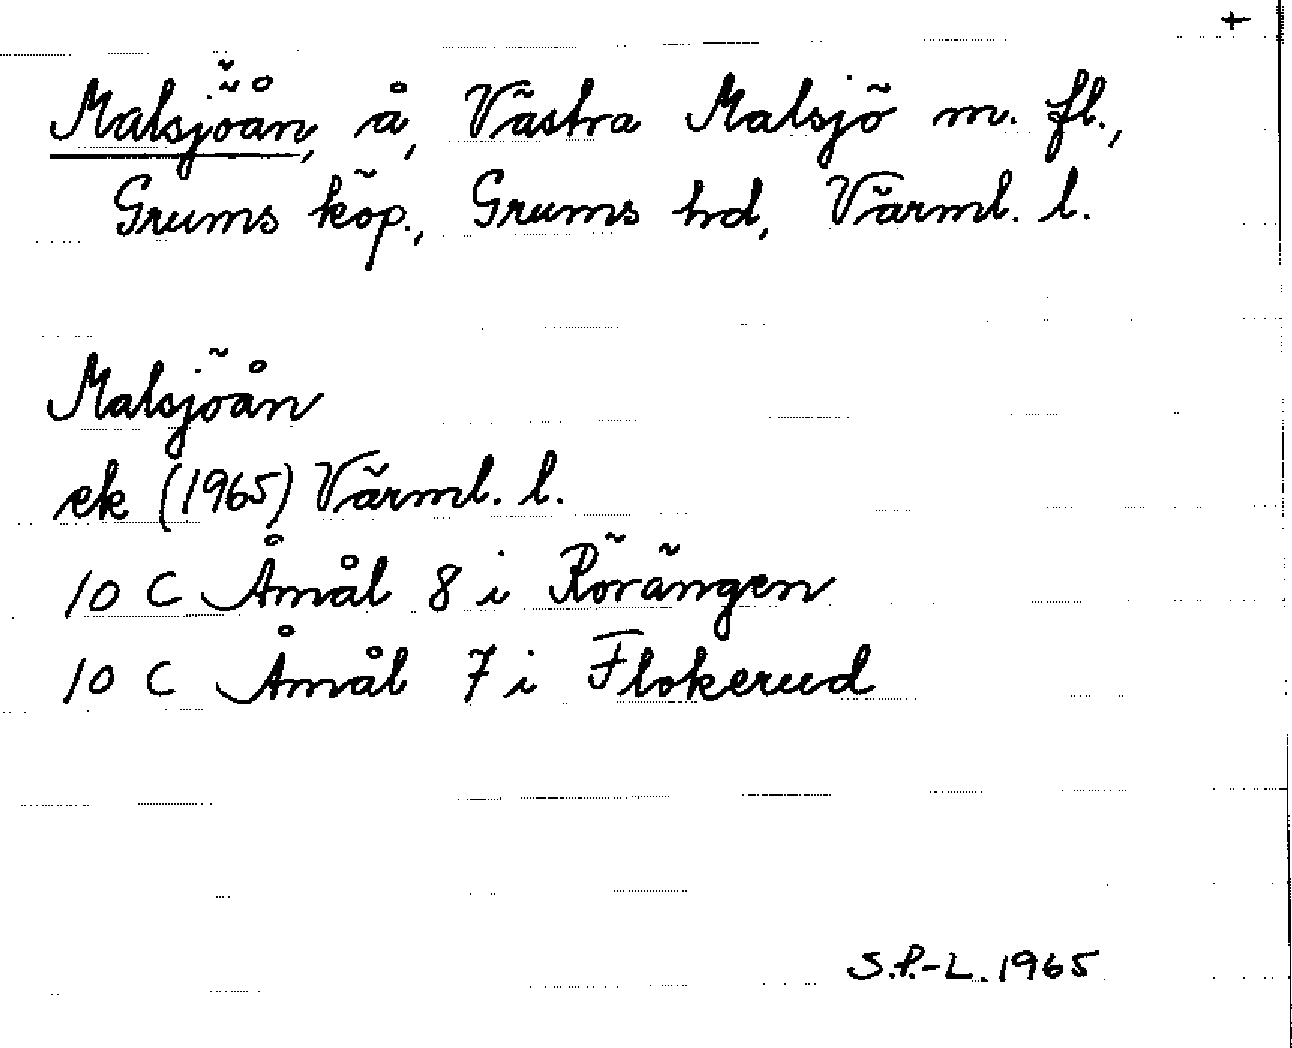 +
Malsjöån, å, Västra Malsjö m. fl.,
Grums köp., Grums hd, Värml. l.
Malsjöån
ek (1965) Värml. l.
10 C Åmål 8 i Rörängen
10 C Åmål 7 i Flokerud
S.P.-L. 1965